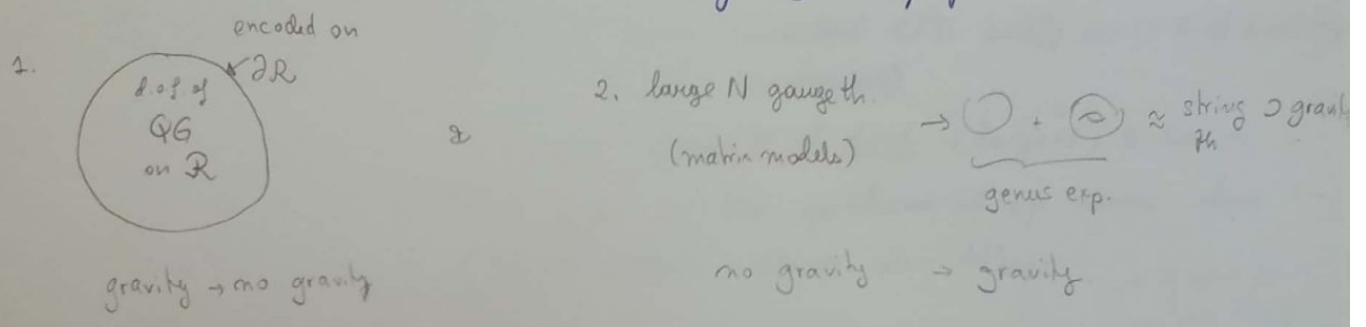 1.
encoded on
∂R
d.o.f. of
QG
on R
gravity → no gravity
&
2. large N gauge th.
(matrix models)
→ ○ + ≈ string th ⊃
genus exp.
no gravity → gravity